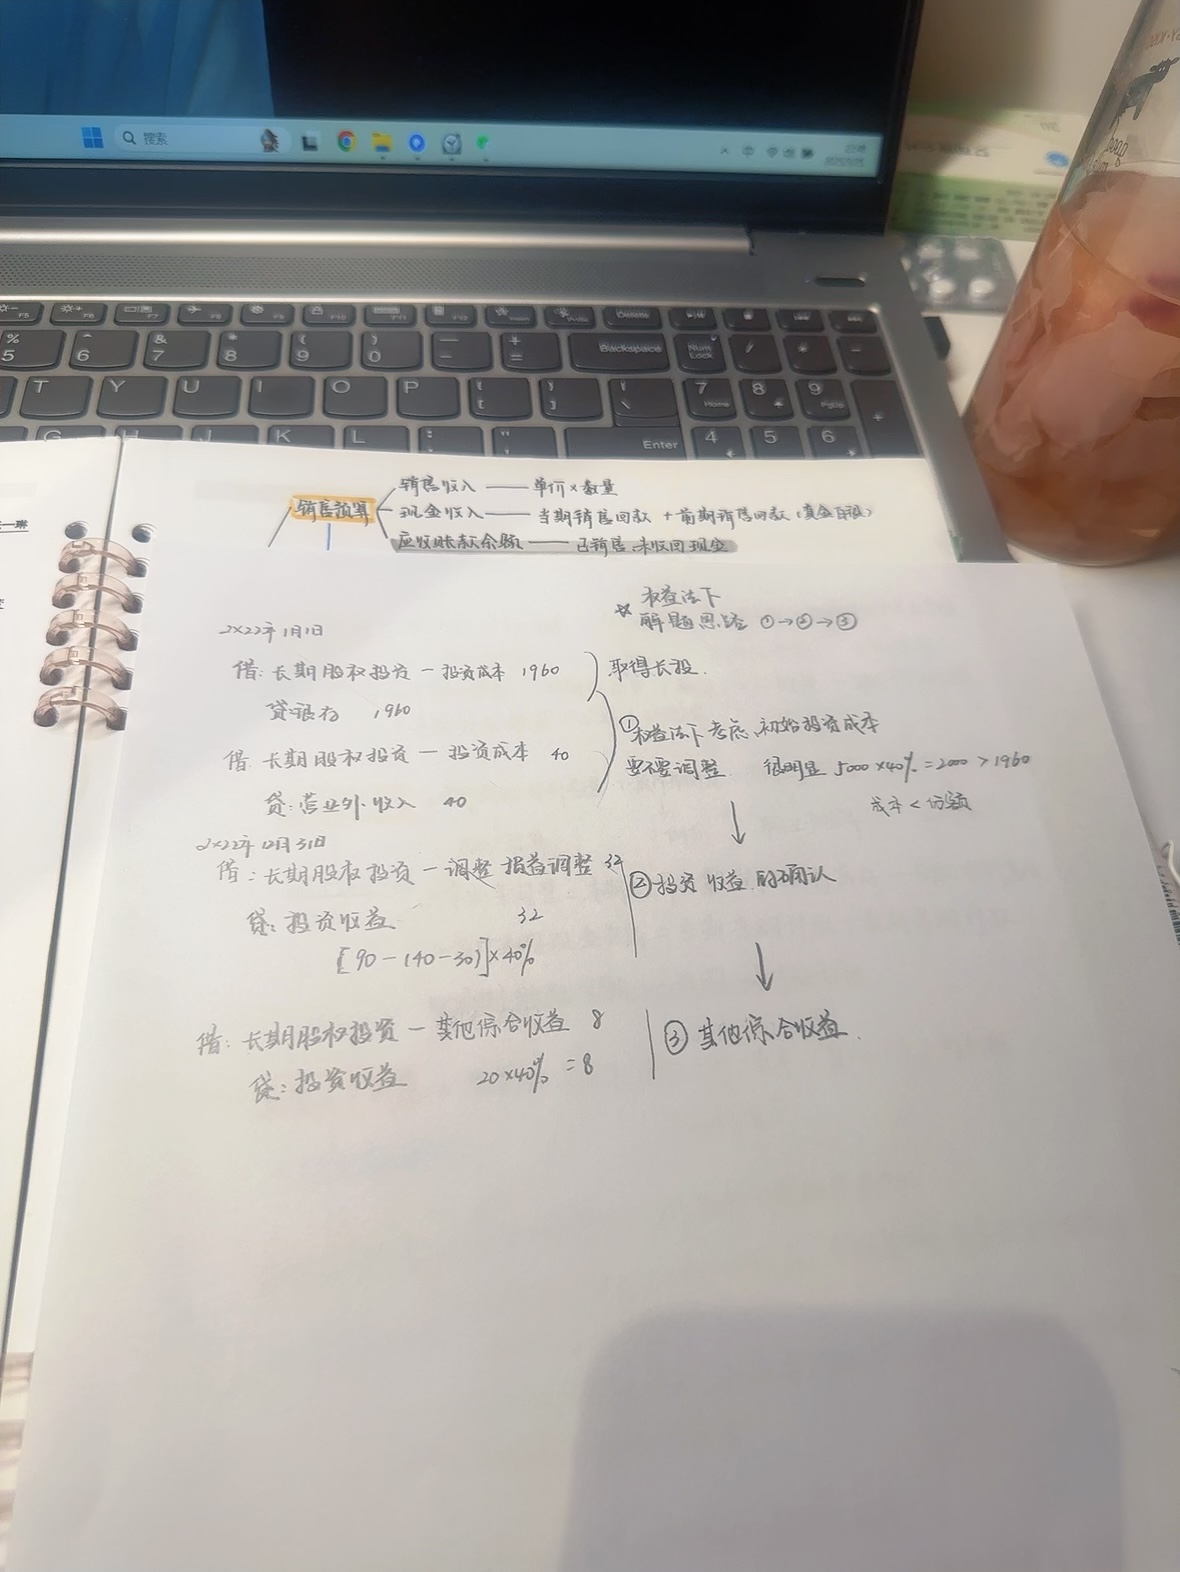 搜索
F5
F6
F7
F8
F9
F10
F11
F12
Delete
%
5
^
6
&
7
*
8
(
9
)
0
—
-
+
=
Backspace
Num
Lock
/
*
-
T
Y
U
I
O
P
{
[
}
]
|
\
7
Home
8
9
PgUp
+
G
H
J
K
L
:
;
"
'
Enter
4
5
6
销售预算
销售收入 —— 单价×数量
现金收入 —— 当期销售回款 + 前期销售回款
应收账款余额 —— 已销售,未收回现金
☆ 权益法下
解题思路 ①→②→③
2×22年1月1日
借:长期股权投资-投资成本 1960
取得长投.
贷:银存 1960
①权益法下考虑,初始投资成本
借:长期股权投资-投资成本 40
要不要调整 很明显 5000×40%=2000>1960
贷:营业外收入 40
成本<份额
2×22年12月31日
借:长期股权投资-调整 损益调整 32
②投资收益的确认
贷:投资收益 32
[90-(40-30)]×40%
借:长期股权投资-其他综合收益 8
③其他综合收益.
贷:投资收益 20×40%=8